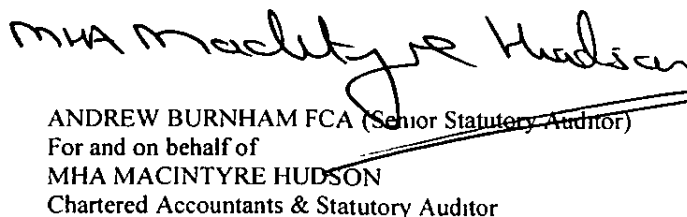 MHA MacIntyre Hudson
ANDREW BURNHAM FCA (Senior Statutory Auditor)
For and on behalf of
MHA MACINTYRE HUDSON
Chartered Accountants & Statutory Auditor